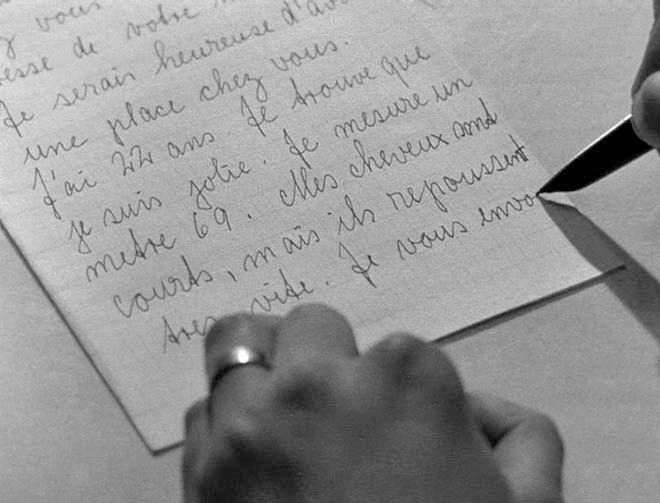 vous
esse de votre
Je serais heureuse d'avo
une place chez vous.
J'ai 22 ans. Je trouve que
je suis jolie. Je mesure un
metre 69. Mes cheveux sont
courts, mais ils repoussent
tres vite. Je vous envo